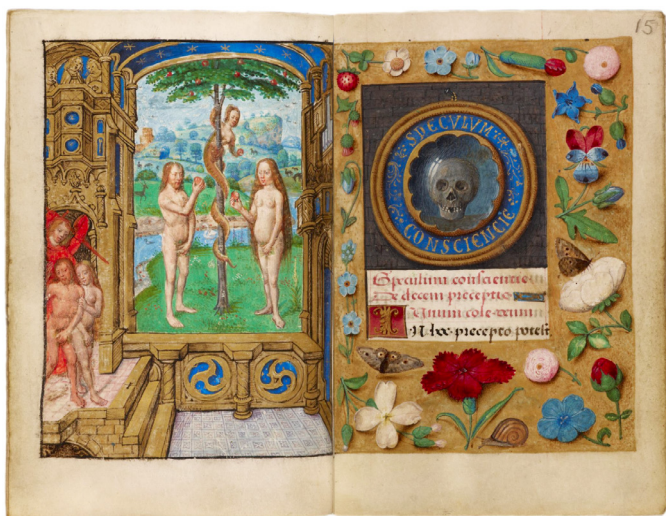 15
SPECULUM
CONSCIENCIE
Speculum conscientie
De decem preceptis
Unum cole deum
IN precepto potest